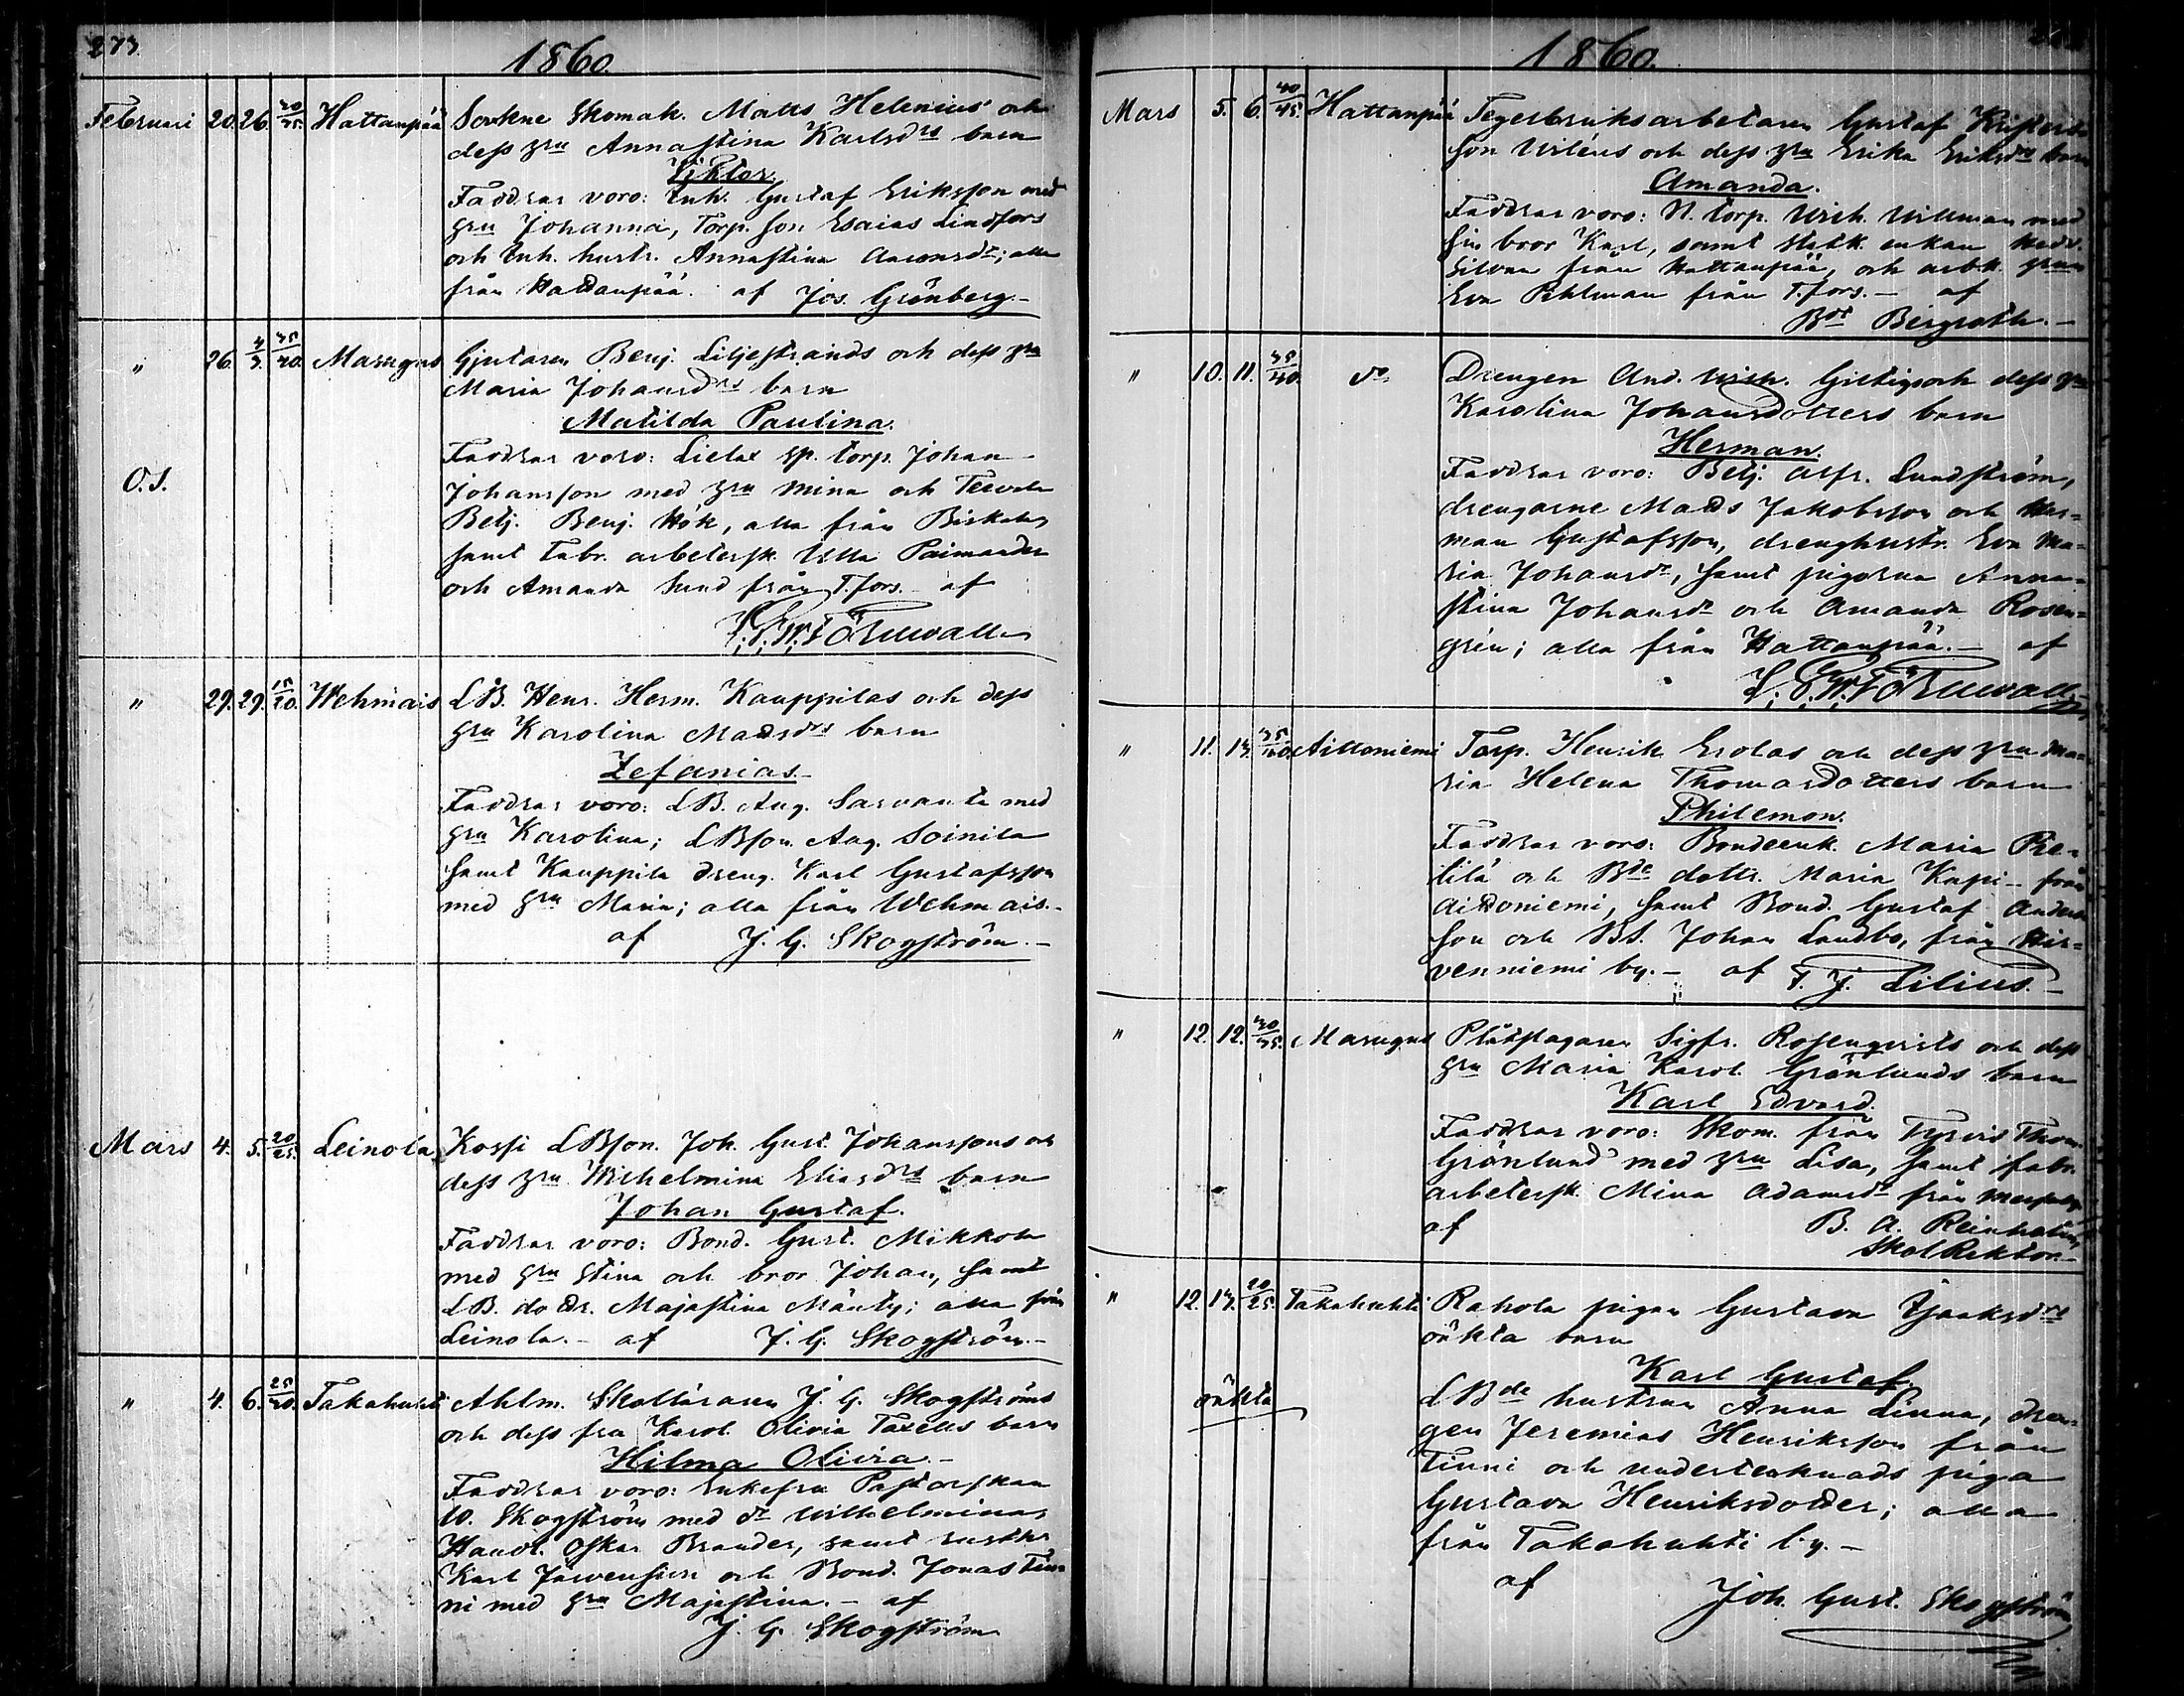 273.
1860.
Februari 20. 26. 30/35. Hattanpää Sockne Skomak. Matts Helenius och
dess hru Annastina Karlsdrs barn
Viktor.
Faddrar voro: Inh. Gustaf Eriksson med
hru Johanna, Torp. son Esaias Lindfors
och Inh. hustr. Annastina Aaronsdr; alla
från Hattanpää. af Jos. Grönberg.-
" 26. 4/3. 35/40. Masugns Gjutaren Benj. Liljestrands och dess hru
Maria Johansdrs barn
Matilda Paulina.
O.S. Faddrar voro: sp. torp. Johan
Johansson med hru Mina och
Betj. Benj. Hök, alla från Birkala,
samt fabr. arbetersk. Ulla
och Amanda Sund från T.fors. af
" 29. 29. 15/20. Wehmais LB. Henr. Herm. Kauppilas och dess
hru Karolina Mattsdrs barn
Zefanias.-
Faddrar voro: LB. Aug. Sarvanta med
hru Karolina; LBson. Aug. Soinila
samt Kauppila dreng. Karl Gustafsson
med hru Maria; alla från Wehmais.-
af J. G. Skogström.-
Mars 4. 5. 20/25. Leinola Kossi LBson. Joh. Gust. Johanssons och
dess hru Wilhelmina Eliasdrs barn
Johan Gustaf.
Faddrar voro: Bond. Gust. Mikkola
med hru Stina och bror Johan, samt
LB. dottr. Majastina Mänty; alla från
Leinola.- af J. G. Skogström.-
" 4. 6. 25/30. Takahuhti Ahlm. Skolläraren J. G. Skogströms
och dess fru Karol. Olivia Taxells barn
Hilma Olivia.-
Faddrar voro: Enkefru Pastorskan
W. Skogström med dr Wilhelmina,
Handl. Oskar Brander, samt rusth.
Karl Järvensivu och Bond. Jonas Tin-
ni med hru Majastina.- af
J. G. Skogström
1860.
Mars 5. 6. 40/45. Hattanpää Tegerbruksarbetaren Gustaf Krister-
son Wiléns och dess hru Erika Eriksdrs barn
Amanda.
Faddrar voro: N. torp. Wilh. Willman med
sin bror Karl, samt statk. enkan Hedv.
från Hattanpää, och arb.k. hrun
Eva Pihlman från T.fors.- af
Bdt Bergroth.-
" 10. 11. 35/40. do Drengen And. Wilh. Giltigs och dess hru
Karolina Johansdotters barn
Herman.
Faddrar voro: Betj. Alfr. Lundström,
drengarne Matts Jakobsson och Her-
man Gustafsson, drenghustr. Eva Ma-
ria Johansdr, samt pigorna Anna-
stina Johansdr och Amanda Rosen-
grén; alla från Hattanpää.- af
" 11. 13. 35/40. Aittoniemi Torp. Henrik Erolas och dess hru Ma-
ria Helena Thomasdotters barn
Philemon.
Faddrar voro: Bondeenk. Maria Pie-
tilä och Bde dottr. Maria Kapi- från
Aittoniemi, samt Bond. Gustaf Anders-
son och BS. Johan Landbo, från Hir-
venniemi by.- af T. J. Lilius.-
" 12. 12. 30/35. Masugns Plåtslagaren Sigfr. Rosenqvists och dess
hru Maria Karol. Grönlunds barn
Karl Edvard.
Faddrar voro: Skom. från Tyrvis Thom.
Grönlund med hru Lisa, samt fabr.
arbetersk. Mina Adamsdr från
af B. A. Reinholm,
SkolRektor.
" 12. 13. 20/25. Takahuhti Rahola pigan Gustava Isaksdrs
oäkta barn
Karl Gustaf.
oäkta LBde hustrun Anna Linna, dren-
gen Jeremias Henriksson från
Tinni och undertecknads piga
Gustava Henriksdotter; alla
från Takahuhti by.-
af Joh. Gust. Skogström